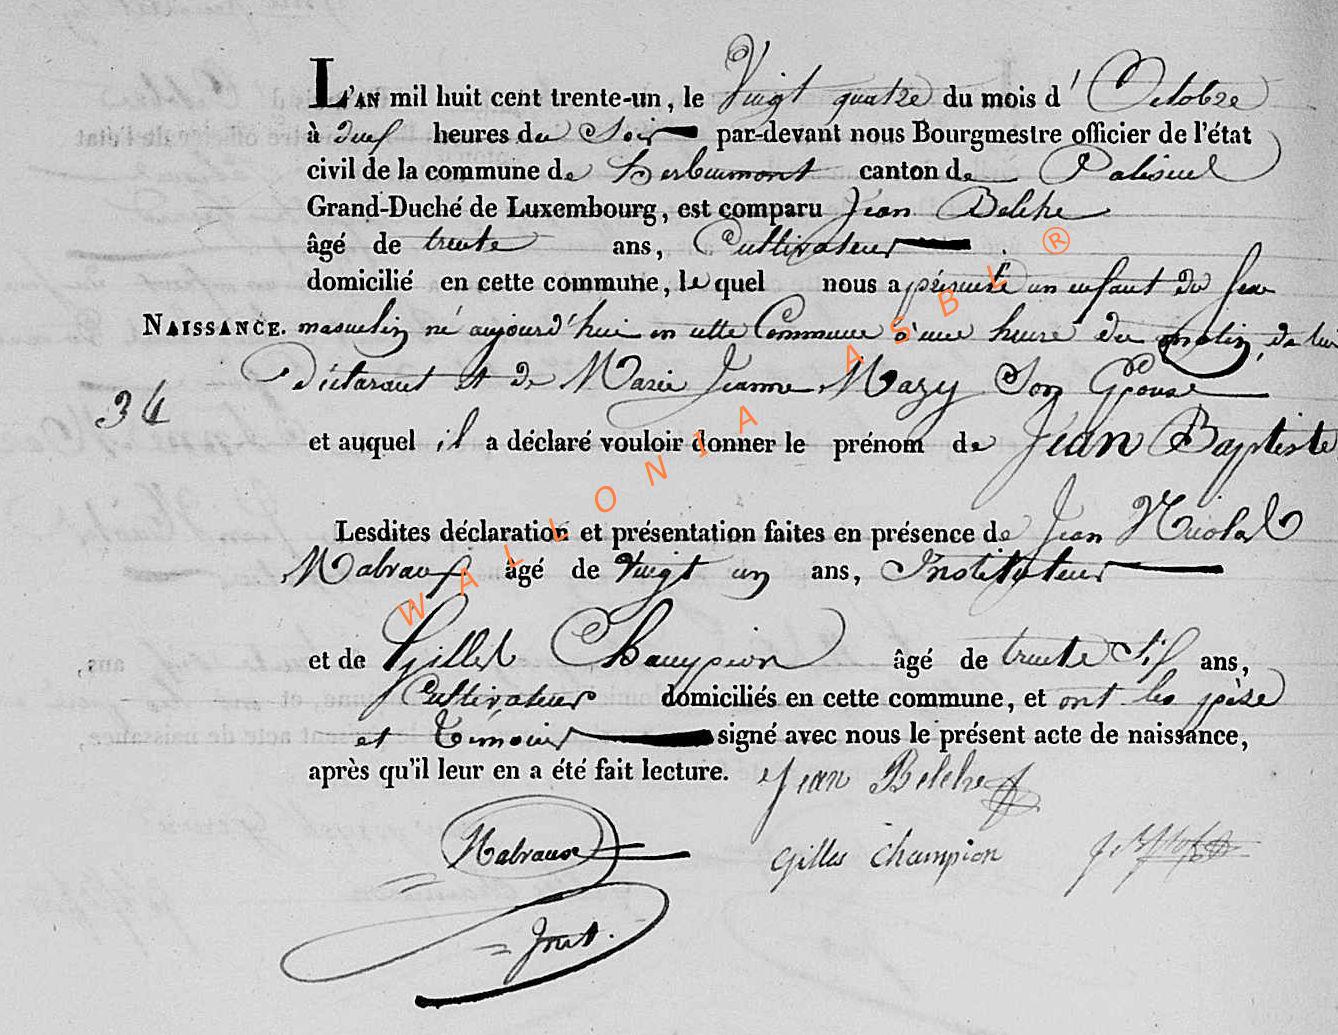 L'AN mil huit cent trente-un, le Vingt quatre du mois d'Octobre
à deux heures du Soir par-devant nous Bourgmestre officier de l'état
civil de la commune de herbeumont canton de Paliseul
Grand-Duché de Luxembourg, est comparu Jean Belche
âgé de trente ans, Cultivateur
domicilié en cette commune, lequel nous a présenté un enfant du sexe
NAISSANCE. masculin né aujourd'hui en cette Commune à une heure du matin, de lui
Déclarant et de Marie Jeanne Mazy Son Epouse
34
et auquel il a déclaré vouloir donner le prénom de Jean Baptiste
Lesdites déclaration et présentation faites en présence de Jean Nicolas
Nabraux âgé de vingt un ans, Instituteur
et de Gilles Champion âgé de trente Six ans,
Cultivateur domiciliés en cette commune, et ont les père
et Temoins signé avec nous le présent acte de naissance,
après qu'il leur en a été fait lecture. Jean Belche
Nabraux Gilles Champion
WALLONIA ASBL ®